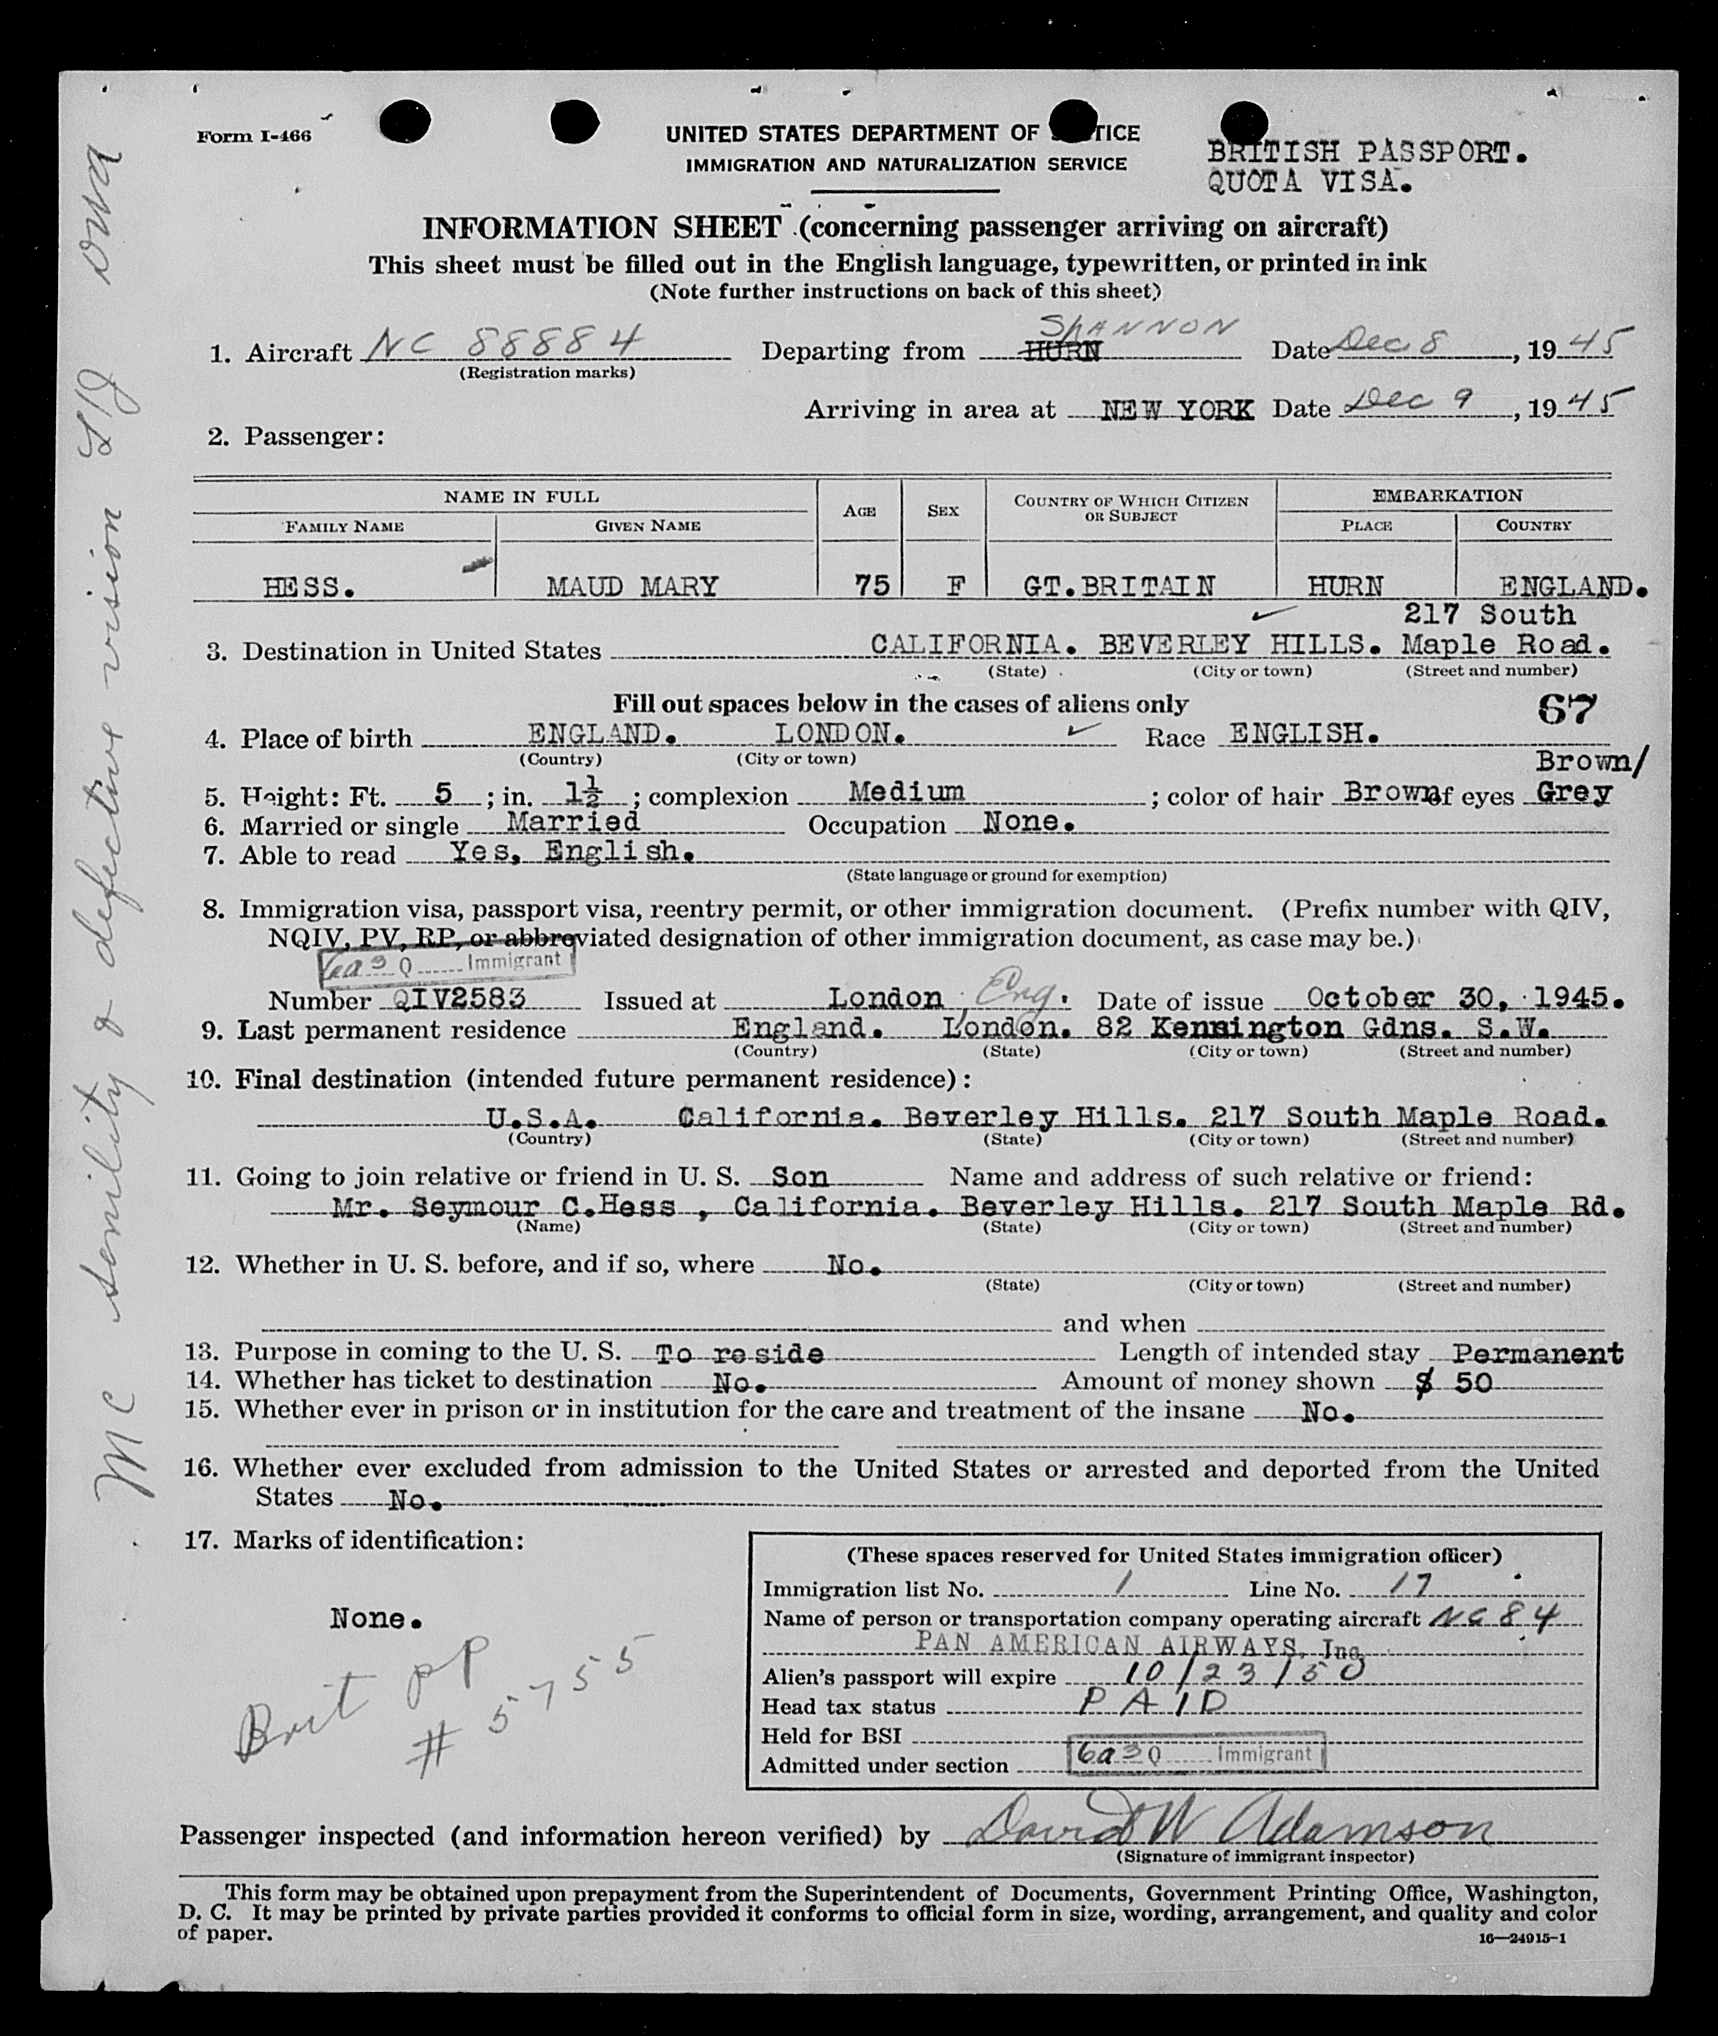 Form I-466
UNITED STATES DEPARTMENT OF TICE
IMMIGRATION AND NATURALIZATION SERVICE
BRITISH PASSPORT.
QUOTA VISA.
INFORMATION SHEET (concerning passenger arriving on aircraft)
This sheet must be filled out in the English language, typewritten, or printed in ink
(Note further instructions on back of this sheet)
SHANNON
1. Aircraft NC 88884 Departing from HURN Date Dec 8, 1945
(Registration marks)
Arriving in area at NEW YORK Date Dec 9, 1945
2. Passenger:
NAME IN FULL AGE SEX COUNTRY OF WHICH CITIZEN OR SUBJECT EMBARKATION
FAMILY NAME GIVEN NAME PLACE COUNTRY
HESS. MAUD MARY 75 F GT.BRITAIN HURN ENGLAND.
217 South
3. Destination in United States CALIFORNIA. BEVERLEY HILLS. Maple Road.
(State) (City or town) (Street and number)
Fill out spaces below in the cases of aliens only
67
4. Place of birth ENGLAND. LONDON. Race ENGLISH.
(Country) (City or town)
Brown/
5. Height: Ft. 5; in. 1½; complexion Medium; color of hair Brown of eyes Grey
6. Married or single Married Occupation None.
7. Able to read Yes, English.
(State language or ground for exemption)
8. Immigration visa, passport visa, reentry permit, or other immigration document. (Prefix number with QIV,
NQIV, PV, RP, or abbreviated designation of other immigration document, as case may be.)
6a3 Q Immigrant
Number QIV2583 Issued at London Eng. Date of issue October 30, 1945.
9. Last permanent residence England. London. 82 Kennington Gdns. S.W.
(Country) (State) (City or town) (Street and number)
10. Final destination (intended future permanent residence):
U.S.A. California. Beverley Hills. 217 South Maple Road.
(Country) (State) (City or town) (Street and number)
11. Going to join relative or friend in U. S. Son Name and address of such relative or friend:
Mr. Seymour C.Hess , California. Beverley Hills. 217 South Maple Rd.
(Name) (State) (City or town) (Street and number)
12. Whether in U. S. before, and if so, where No.
(State) (City or town) (Street and number)
and when
13. Purpose in coming to the U. S. To reside Length of intended stay Permanent
14. Whether has ticket to destination No. Amount of money shown $ 50
15. Whether ever in prison or in institution for the care and treatment of the insane No.
16. Whether ever excluded from admission to the United States or arrested and deported from the United
States No.
17. Marks of identification:
None.
Brit pp
# 5755
(These spaces reserved for United States immigration officer)
Immigration list No. 1 Line No. 17
Name of person or transportation company operating aircraft NC 84
PAN AMERICAN AIRWAYS, Inc
Alien's passport will expire 10/23/50
Head tax status PAID
Held for BSI
Admitted under section 6a3 Q Immigrant
Passenger inspected (and information hereon verified) by David W Adamson
(Signature of immigrant inspector)
This form may be obtained upon prepayment from the Superintendent of Documents, Government Printing Office, Washington,
D. C. It may be printed by private parties provided it conforms to official form in size, wording, arrangement, and quality and color
of paper.
16—24915-1
MC senility & defective vision